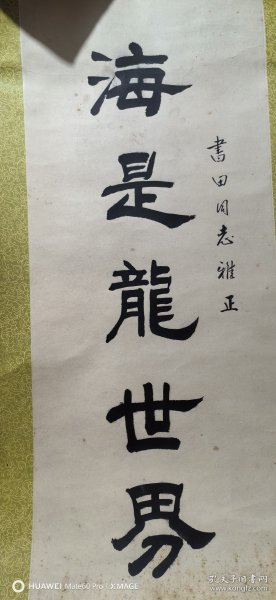 書田同志雅正
海是龍世界
HUAWEI Mate60 Pro | XMAGE
孔夫子旧书网